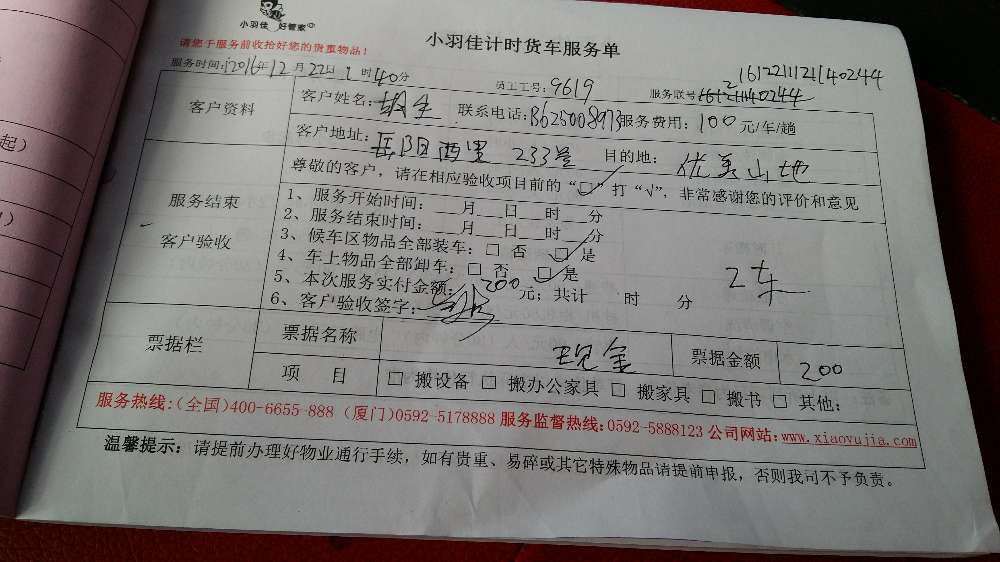 小羽佳 好管家
小羽佳计时货车服务单
请您于服务前收拾好您的贵重物品！
161221112114 0244
服务时间：2016年12月22日 时40分 员工工号：9619 服务联号
客户资料
客户姓名： 联系电话：服务费用：100元/车/趟
客户地址：岳阳西里 233号 目的地：优美山地
服务结束
客户验收
尊敬的客户，请在相应验收项目前的“□”打“√”，非常感谢您的评价和意见
1、服务开始时间：___月___日___时___分
2、服务结束时间：___月___日___时___分
3、候车区物品全部装车：□ 否 □ 是
4、车上物品全部卸车：□ 否 □ 是
2车
5、本次服务实付金额：200元；共计 时 分
6、客户验收签字：
票据栏
票据名称 现金 票据金额 200
项 目 □ 搬设备 □ 搬办公家具 □ 搬家具 □ 搬书 □ 其他：
服务热线：（全国）400-6655-888（厦门）0592-5178888 服务监督热线：0592-5888123 公司网站：www.xiaoyujia.com
温馨提示：请提前办理好物业通行手续，如有贵重、易碎或其它特殊物品请提前申报，否则我司不予负责。